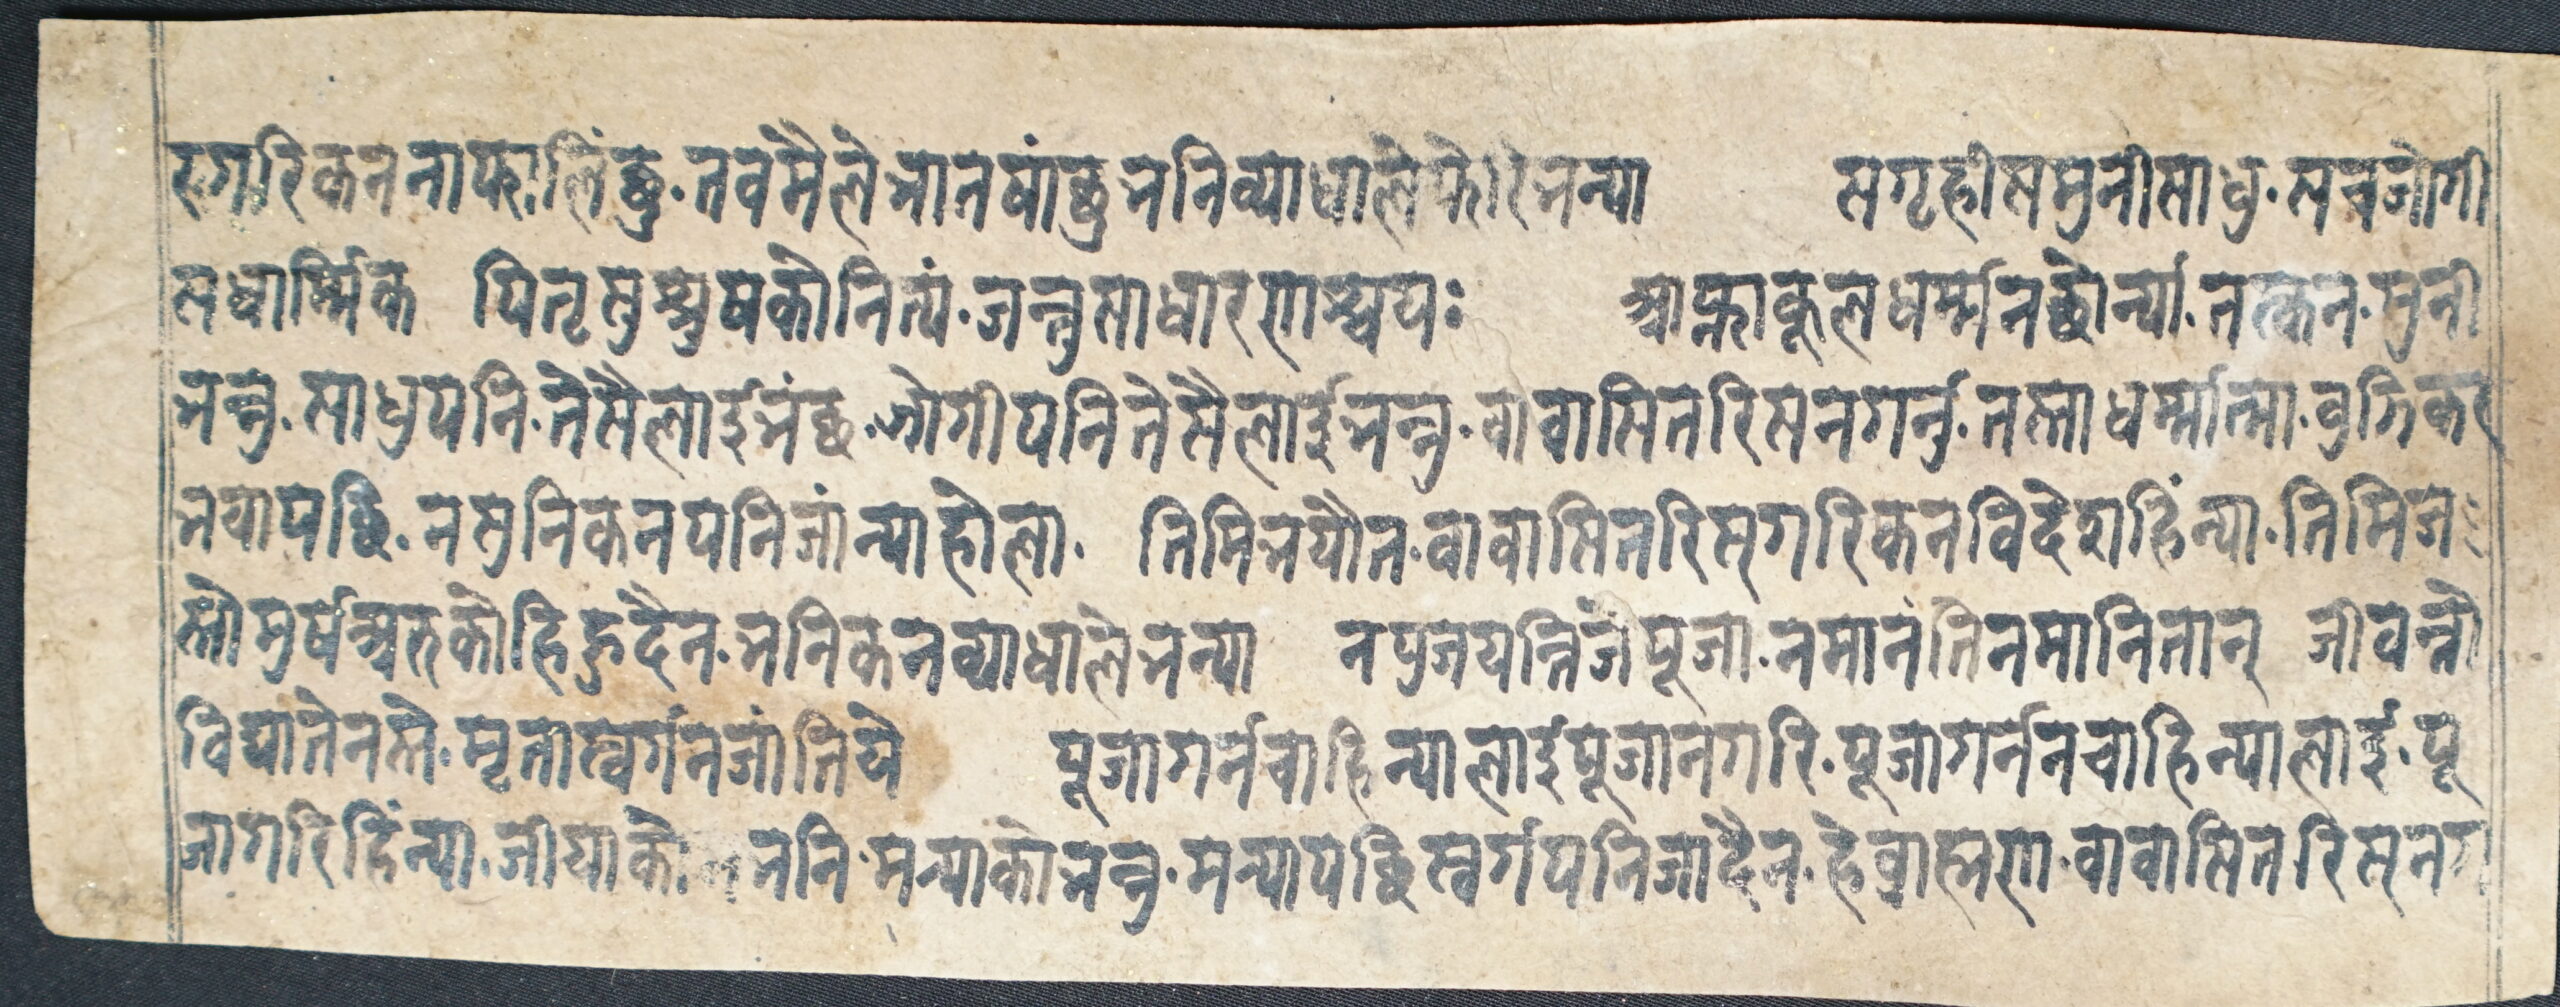 रगरिकन नाफालिंछु. तव मैले भानषांछु भनि व्याधाले फेरि भन्या सगृही समुनी साधु. सच जोगी
सधार्म्मिक पितृसुश्रुषको नित्यं. जन्तु साधारणाश्चयः आफ्नाकूलधर्म्म नछोर्न्या. तत्कन. मुनी
भन्नु. साधु पनि. तेसैलाइ भंछ. जोगी पनि तेसैलाई भन्नु. वावासित रिस नगर्नु. तस्ता धर्म्मात्मा.
भयापछि. न मुनिकन पनि जांन्या होला. तिमि भयौत. वावासित रिस् गरिकन विदेश हिंन्या. तिमि ज
स्तो मुर्ष अरुकोहि हुदैन. भनिकन व्याधाले भन्या न पुजयन्ति जे पूजा. नमानंति नमानितान् जीवन्तो
विद्यातेनस्ते. मृतास्वर्गं न जांतिये पूजा गर्न चाहिन्यालाइ पूजा नगरि. पूजा गर्न नचाहिन्यालाइ. पू
जा गरि हिंन्या. जीयाको भनि मन्याको भन्नु. मन्यापछि स्वर्ग पनि जादैन. हे व्राह्मण. वावासित रिस् नग